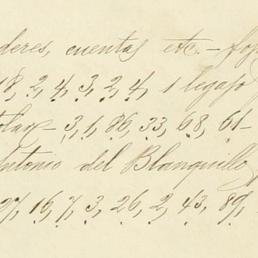 deres, cuentas etc. - foj
18, 2, 4, 3, 2, 4, 1 legajo
tas - 3, 1, 86, 33, 68, 61 -
Antonio del Blanquillo
97, 16, 7, 3, 26, 2, 43, 89,